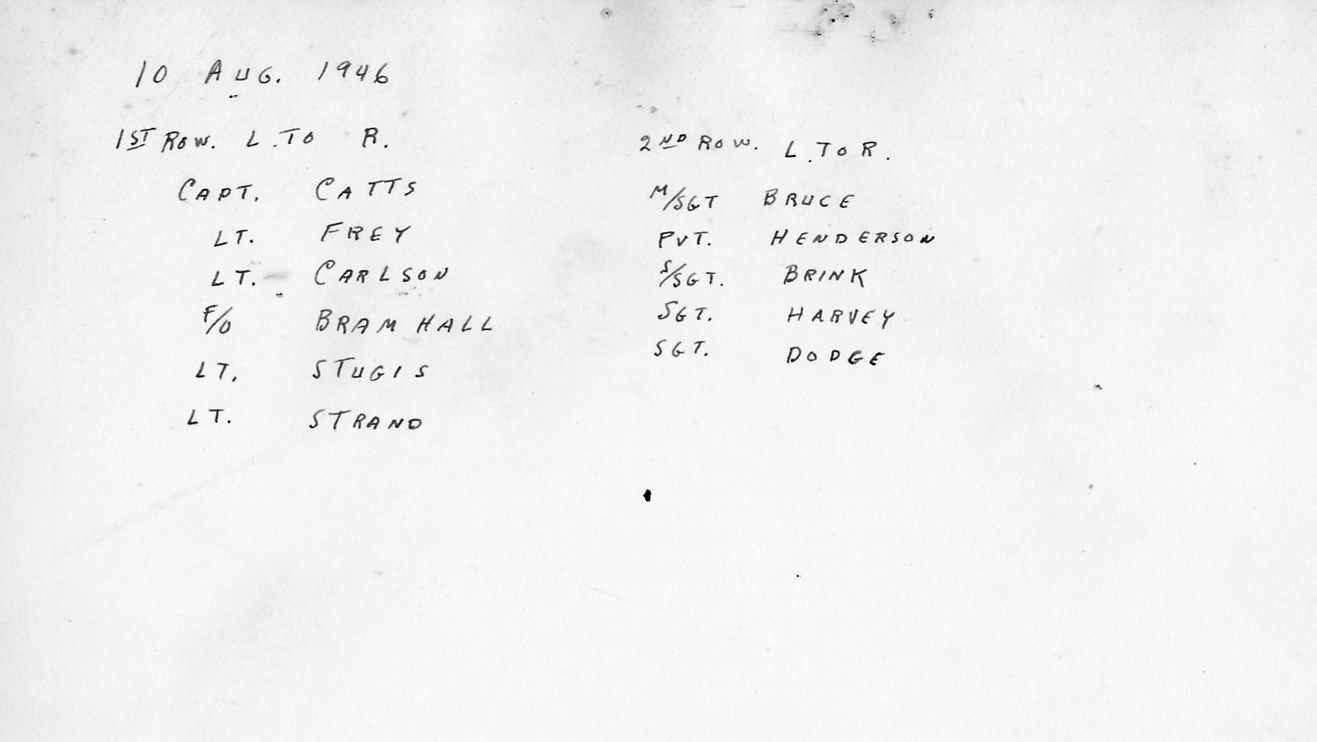 10 AUG. 1946
1ST ROW. L. TO R.
CAPT. CATTS
LT. FREY
LT. CARLSON
F/O BRAMHALL
LT. STUGIS
LT. STRAND
2ND ROW. L. TO R.
M/SGT BRUCE
PVT. HENDERSON
S/SGT. BRINK
SGT. HARVEY
SGT. DODGE